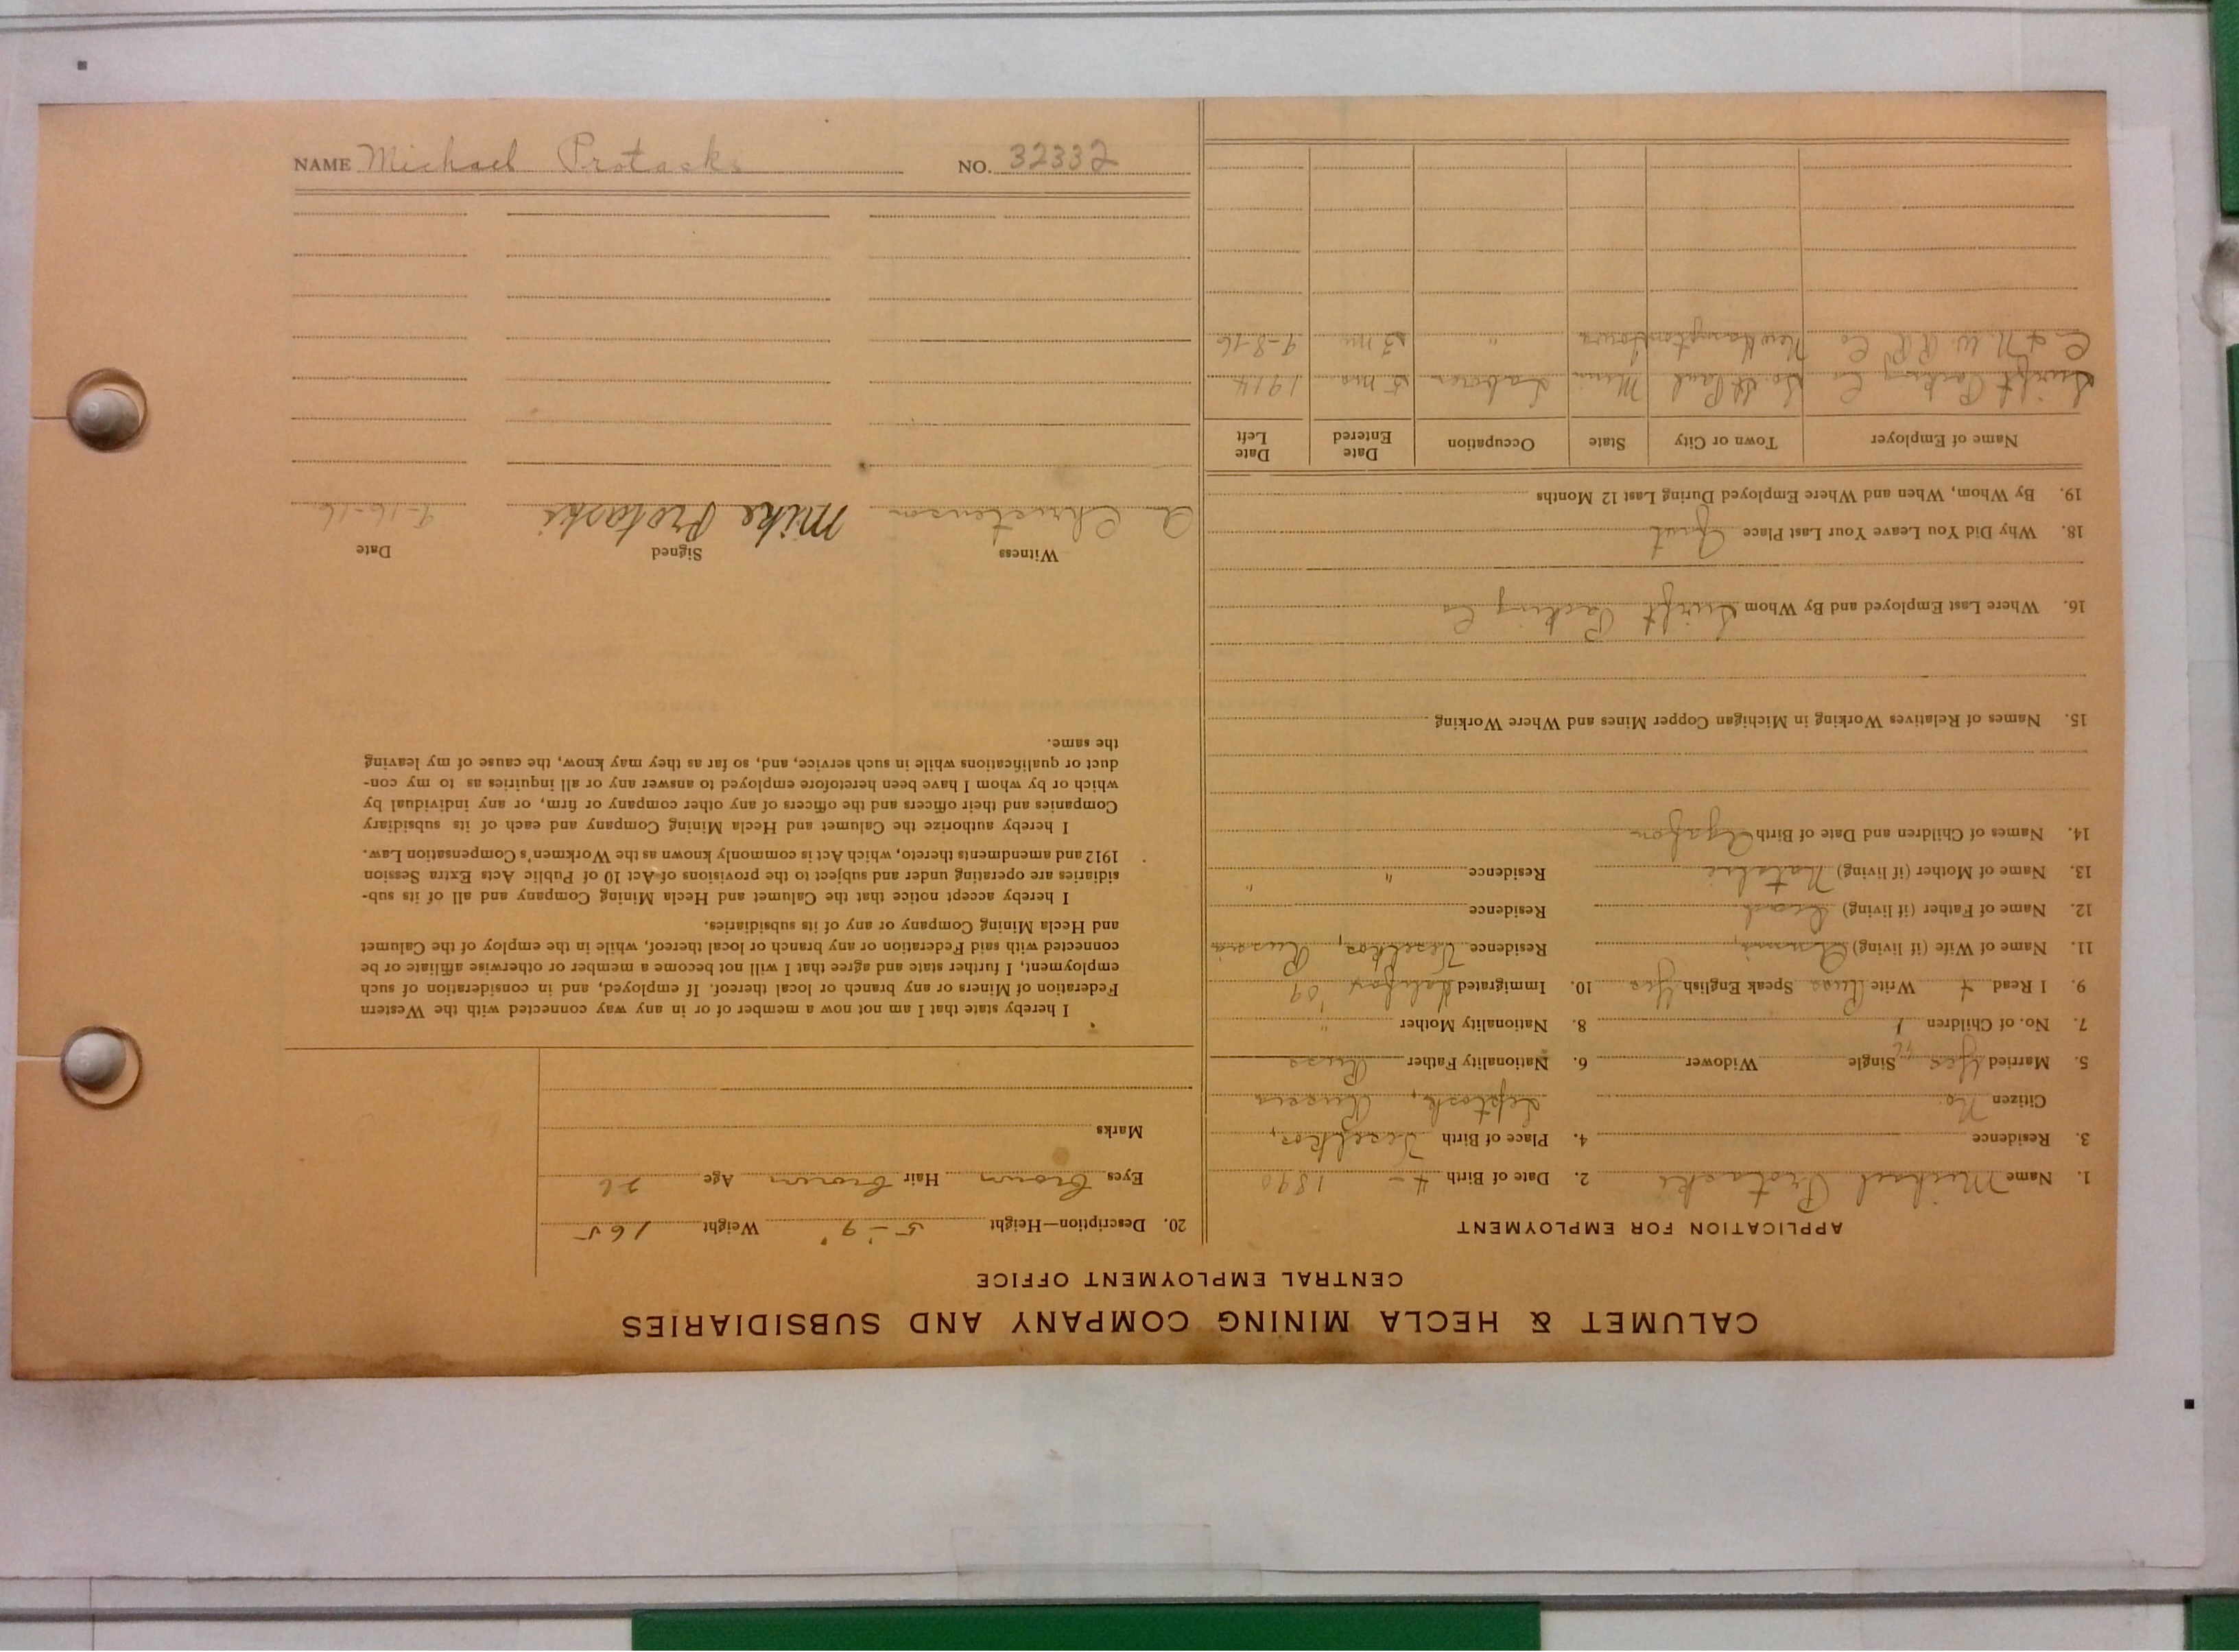 CALUMET & HECLA MINING COMPANY AND SUBSIDIARIES
CENTRAL EMPLOYMENT OFFICE
APPLICATION FOR EMPLOYMENT
1. Name Michael Protaski 2. Date of Birth 4 - 1890
3. Residence 4. Place of Birth
Citizen No. Russia
5. Married Yes Single Widower 6. Nationality Father Russ
7. No. of Children 1 8. Nationality Mother "
9. I Read + Write Russ Speak English Yes 10. Immigrated '09
11. Name of Wife (if living) Residence Russia
12. Name of Father (if living) Residence
13. Name of Mother (if living) Natalie Residence " "
14. Names of Children and Date of Birth
15. Names of Relatives Working in Michigan Copper Mines and Where Working
16. Where Last Employed and By Whom Swift Packing Co
18. Why Did You Leave Your Last Place Quit
19. By Whom, When and Where Employed During Last 12 Months
Name of Employer Town or City State Occupation Date Entered Date Left
Swift Packing Co So. St Paul Minn Laborer 5 mo. 1914
C & N. W. RR Co Iowa " 3 mo 9-8-16
20. Description—Height 5-9" Weight 165
Eyes Brown Hair Brown Age 26
Marks
I hereby state that I am not now a member of or in any way connected with the Western
Federation of Miners or any branch or local thereof. If employed, and in consideration of such
employment, I further state and agree that I will not become a member or otherwise affiliate or be
connected with said Federation or any branch or local thereof, while in the employ of the Calumet
and Hecla Mining Company or any of its subsidiaries.
I hereby accept notice that the Calumet and Hecla Mining Company and all of its sub-
sidiaries are operating under and subject to the provisions of Act 10 of Public Acts Extra Session
1912 and amendments thereto, which Act is commonly known as the Workmen's Compensation Law.
I hereby authorize the Calumet and Hecla Mining Company and each of its subsidiary
Companies and their officers and the officers of any other company or firm, or any individual by
which or by whom I have been heretofore employed to answer any or all inquiries as to my con-
duct or qualifications while in such service, and, so far as they may know, the cause of my leaving
the same.
Witness Signed Date
A Christenson Mike Protaski 9-16-16
NAME Michael Protaski NO. 32332